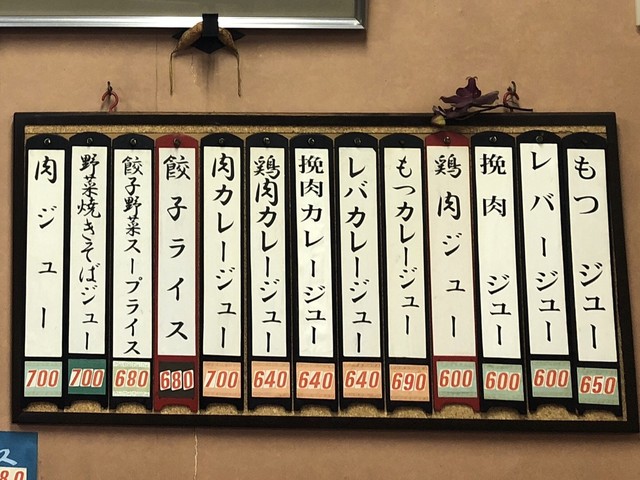 もつジュー
650
レバージュー
600
挽肉ジュー
600
鶏肉ジュー
600
もつカレージュー
690
レバカレージュー
640
挽肉カレージュー
640
鶏肉カレージュー
640
肉カレージュー
700
餃子ライス
680
餃子野菜スープライス
680
野菜焼きそばジュー
700
肉ジュー
700
ス